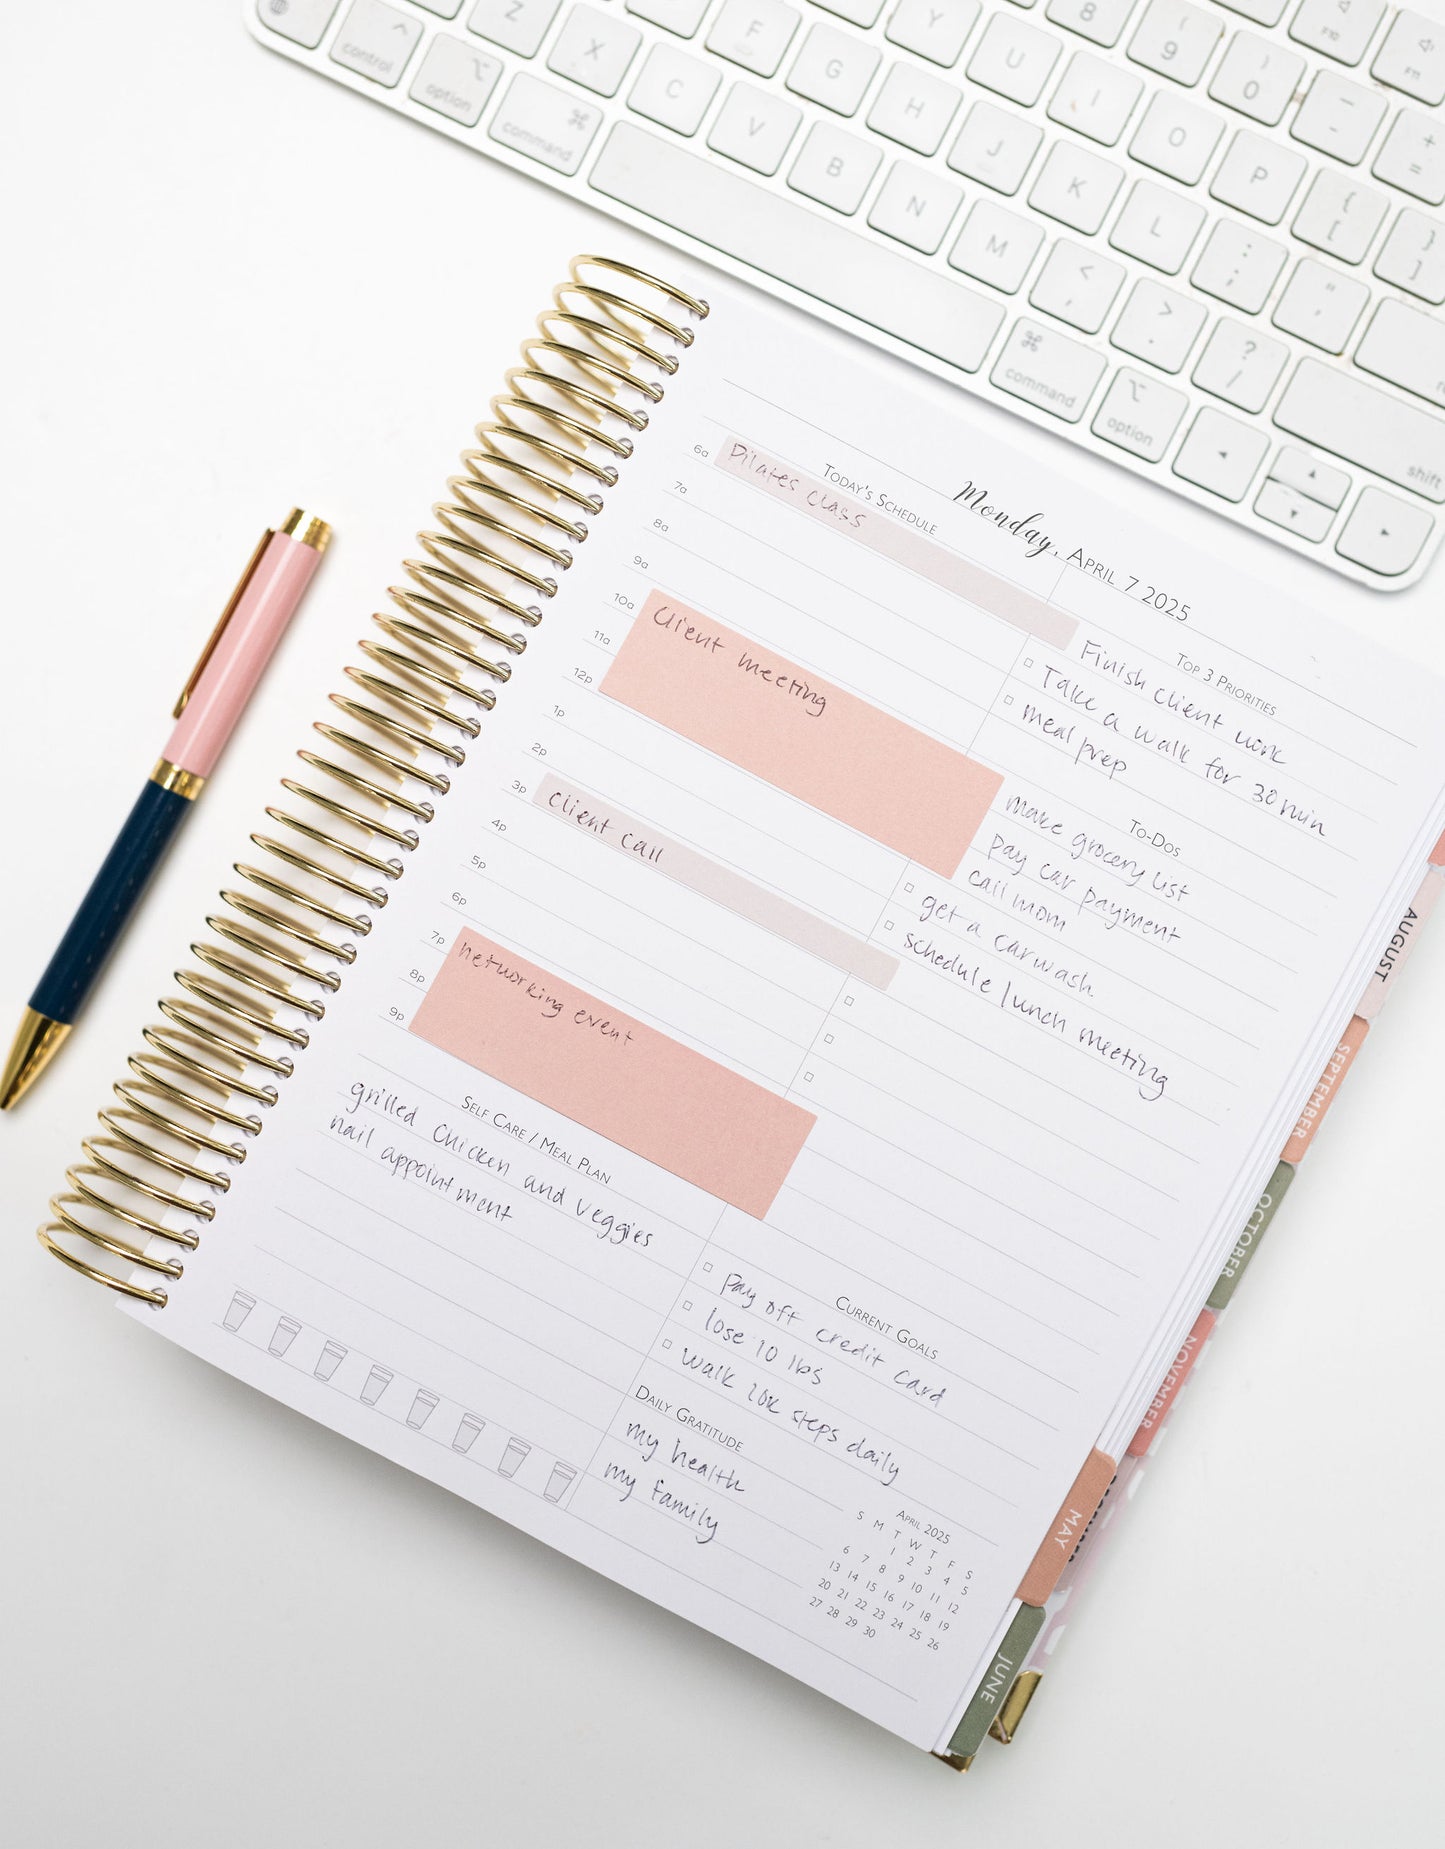 control
option
command
Z
X
C
V
F
G
B
Y
H
N
U
J
M
8
I
K
( 9
O
L
) 0
P
< ,
> .
? /
: ;
" '
{ [
} ]
_ -
+ =
F10
F11
command
option
shift
Monday, April 7 2025
Today's Schedule
6a Pilates class
7a
8a
9a
10a Client meeting
11a
12p
1p
2p
3p client call
4p
5p
6p
7p networking event
8p
9p
Top 3 Priorities
Finish client work
Take a walk for 30 min
meal prep
To-Dos
make grocery list
pay car payment
call mom
get a carwash
schedule lunch meeting
Self Care / Meal Plan
grilled chicken and veggies
nail appointment
Current Goals
pay off credit card
lose 10 lbs
walk 10k steps daily
Daily Gratitude
my health
my family
April 2025
S M T W T F S
1 2 3 4 5
6 7 8 9 10 11 12
13 14 15 16 17 18 19
20 21 22 23 24 25 26
27 28 29 30
AUGUST
SEPTEMBER
OCTOBER
NOVEMBER
MAY
JUNE